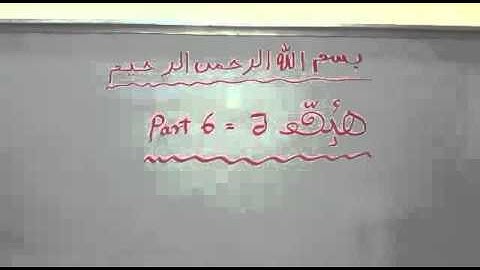 بسم الله الرحمن الرحيم
Part 6 =